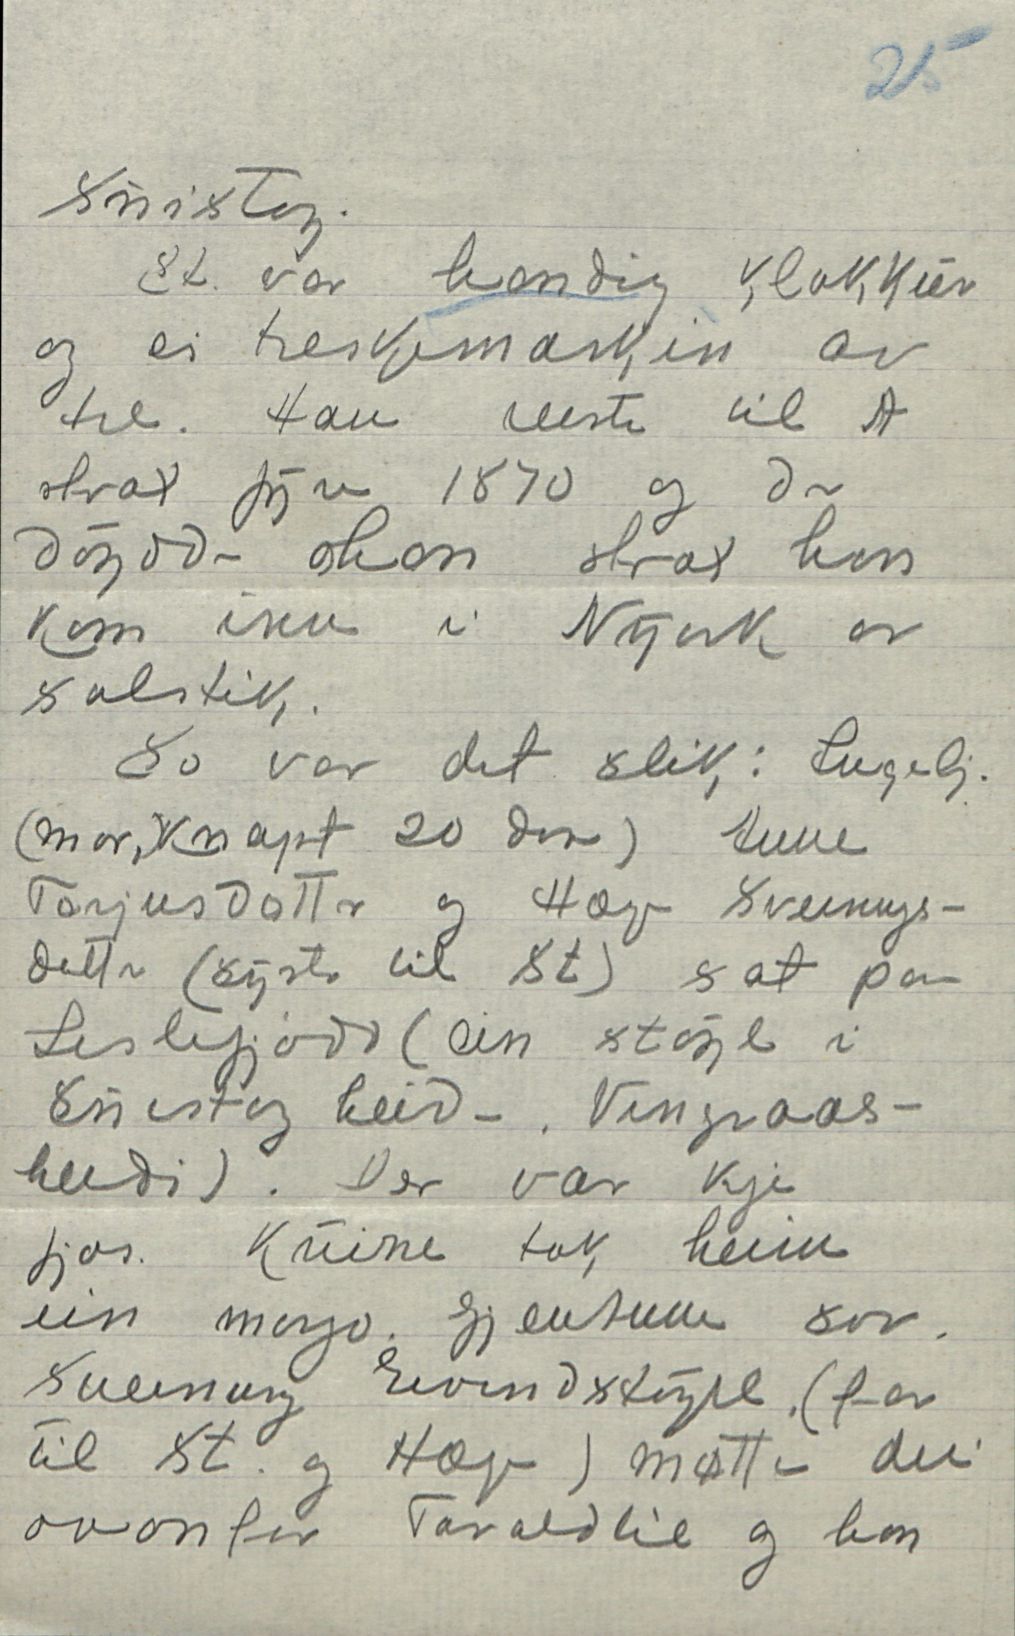 25
Snistog.
St. var hendig klokkur
og ei treskjemaskin av
tre. Han reiste til A
strax fyre 1870 og da
döydde han strax han
kom inn i Nyork av
solstik.
So var det slik: Ingebj.
(mor, knapt 20 da)
Tarjusdotter og Hæge Sveinungs-
dotter (syster til St) sat paa
(ein stöyl i
heid
heidi). Der var kje
fjos. Kuine tok heim
ein morgo. Gjentunne sov.
Sveinung Eivindstöyl (far
til St. og Hæge) møtte dei
ovanfor Taraldlid og han